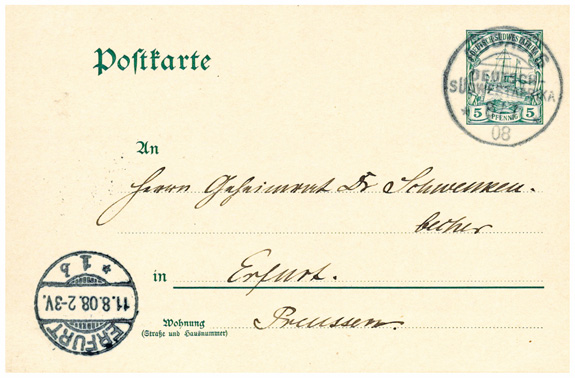 Postkarte
DEUTSCH-
SÜDWESTAFRIKA
08
5 PFENNIG 5
An
Herrn Geheimrat Dr Schwenken-
becher
in Erfurt.
Wohnung
(Straße und Hausnummer)
Preussen.
* 1 b
11.8.08.2-3V.
ERFURT